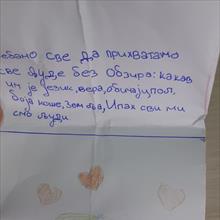 све да прихватамо
све људе без обзира: какав
им је језик, вера, обичаји, пол,
боја коже, земља, Ипак сви ми
смо људи